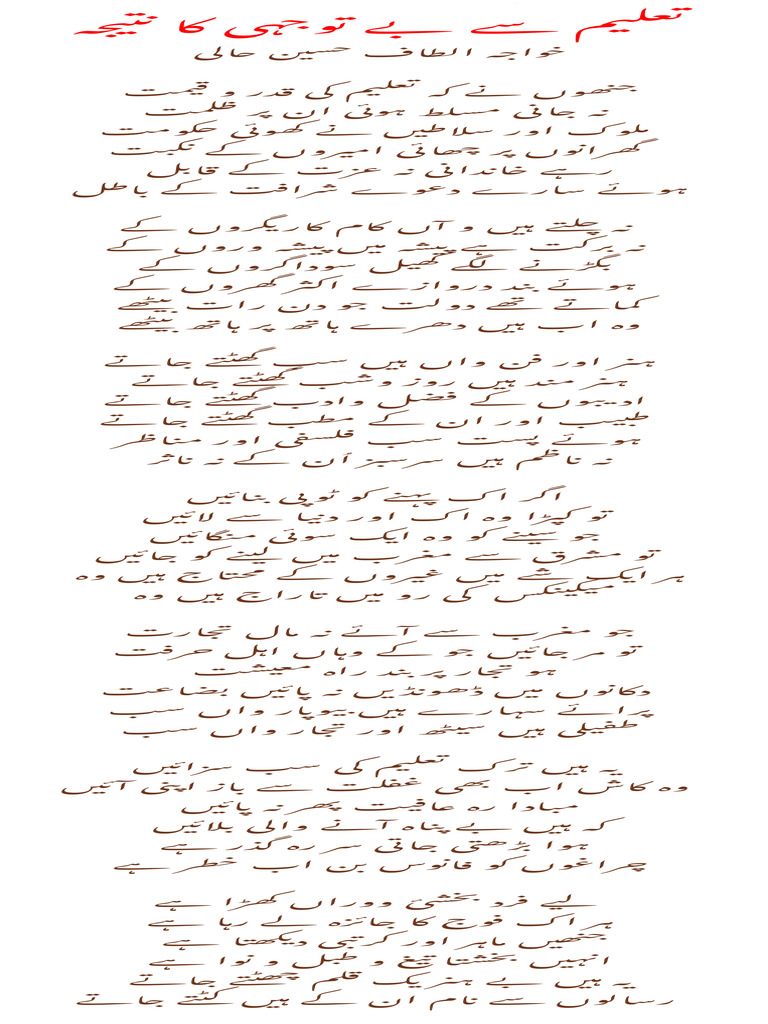 تعلیم سے بے توجہی کا نتیجہ
خواجہ الطاف حسین حالی
جنھوں نے کہ تعلیم کی قدر و قیمت
نہ جانی مسلط ہوئی ان پر ظلمت
ملوک اور سلاطیں نے کھوئی حکومت
گھرانوں پر چھائی امیروں کے نکبت
رہے خاندانی نہ عزت کے قابل
ہوئے سارے دعوے شرافت کے باطل
نہ چلتے ہیں و آں کام کاریگروں کے
نہ برکت ہے پیشہ میں پیشہ وروں کے
بگڑنے لگے کھیل سوداگروں کے
ہوئے بند دروازے اکثر گھروں کے
کماتے تھے دولت جو دن رات بیٹھے
وہ اب ہیں دھرے ہاتھ پر ہاتھ بیٹھے
ہنر اور فن واں ہیں سب گھٹتے جاتے
ہنر مند ہیں روز و شب گھٹتے جاتے
ادیبوں کے فضل وادب گھٹتے جاتے
طبیب اور ان کے مطب گھٹتے جاتے
ہوئے پست سب فلسفی اور مناظر
نہ ناظم ہیں سرسبز أن کے نہ ناثر
اگر اک پہنے کو ٹوپی بنائیں
تو کپڑا وہ اک اور دنیا سے لائیں
جو سینے کو وہ ایک سوئی منگائیں
تو مشرق سے مغرب میں لینے کو جائیں
ہر ایک شے میں غیروں کے محتاج ہیں وہ
میکینکس کی رو میں تاراج ہیں وہ
جو مغرب سے آئے نہ مال تجارت
تو مر جائیں جو کے وہاں اہل حرفت
ہو تجار پر بند راہ معیشت
دکانوں میں ڈھونڈیں نہ پائیں بضاعت
پرائے سہارے ہیں بیوپار واں سب
طفیلی ہیں سیٹھ اور تجار واں سب
یہ ہیں ترک تعلیم کی سب سزائیں
وہ کاش اب بھی غفلت سے باز اپنی آئیں
مبادا رہ عافیت پھر نہ پائیں
کہ ہیں بے پناہ آنے والی بلائیں
ہوا بڑھتی جاتی سر رہ گذر ہے
چراغوں کو فانوس بن اب خطر ہے
لیے فرد بخشیٔ دوراں کھڑا ہے
ہر اک فوج کا جائزہ لے رہا ہے
جنھیں ماہر اور کرتبی دیکھتا ہے
انہیں بخشتا تیغ و طبل و نوا ہے
یہ ہیں بے ہنر یک قلم چھٹتے جاتے
رسالوں سے نام ان کے ہیں کٹتے جاتے